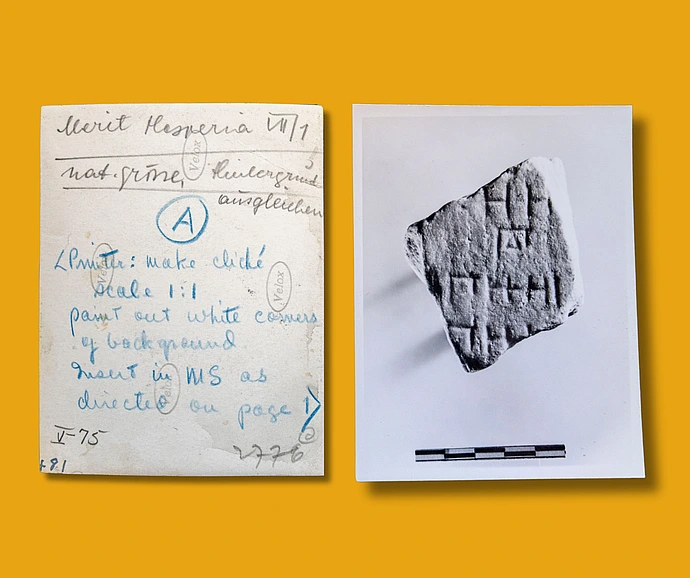 Merit Hesperia VII/1
nat. grösse, Hintergrund
ausgleichen
Velox
A
Printer: make cliché
scale 1:1
Velox
Velox
paint out white corners
of background
Insert in MS as
directed on page 1
Velox
V-75
2776